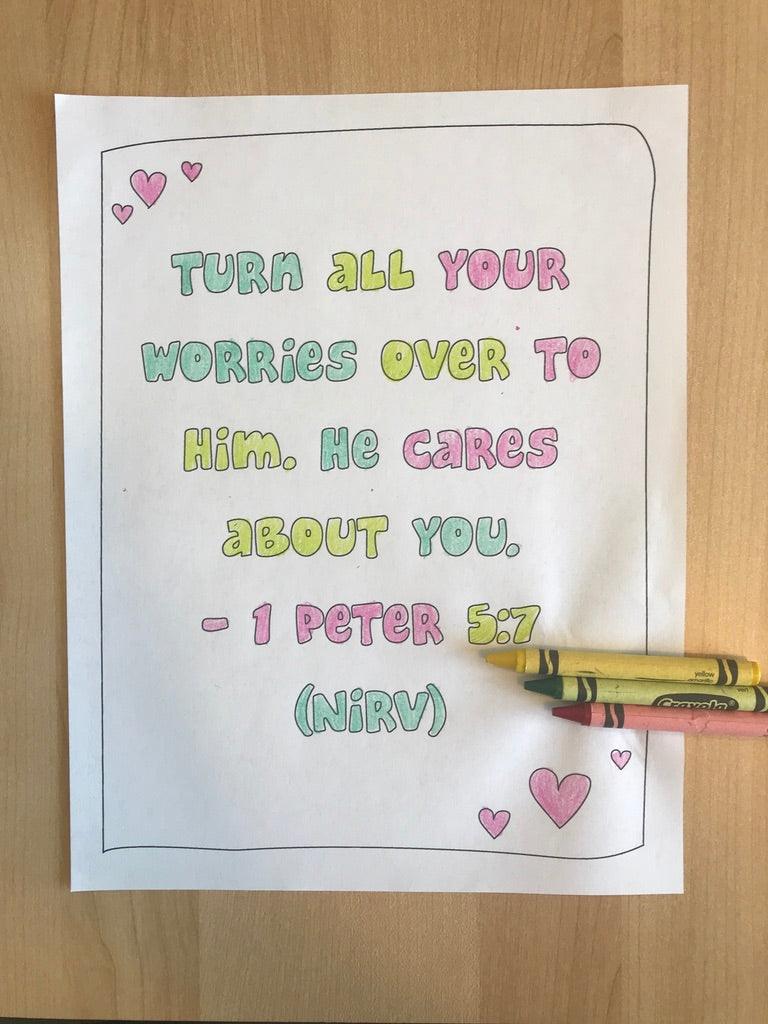 TURN all YOUR
WORRies OVeR TO
Him. He CaRes
aBOUT YOU.
- 1 PeTeR 5:7
(NiRV)
yellow
amarillo
Crayola